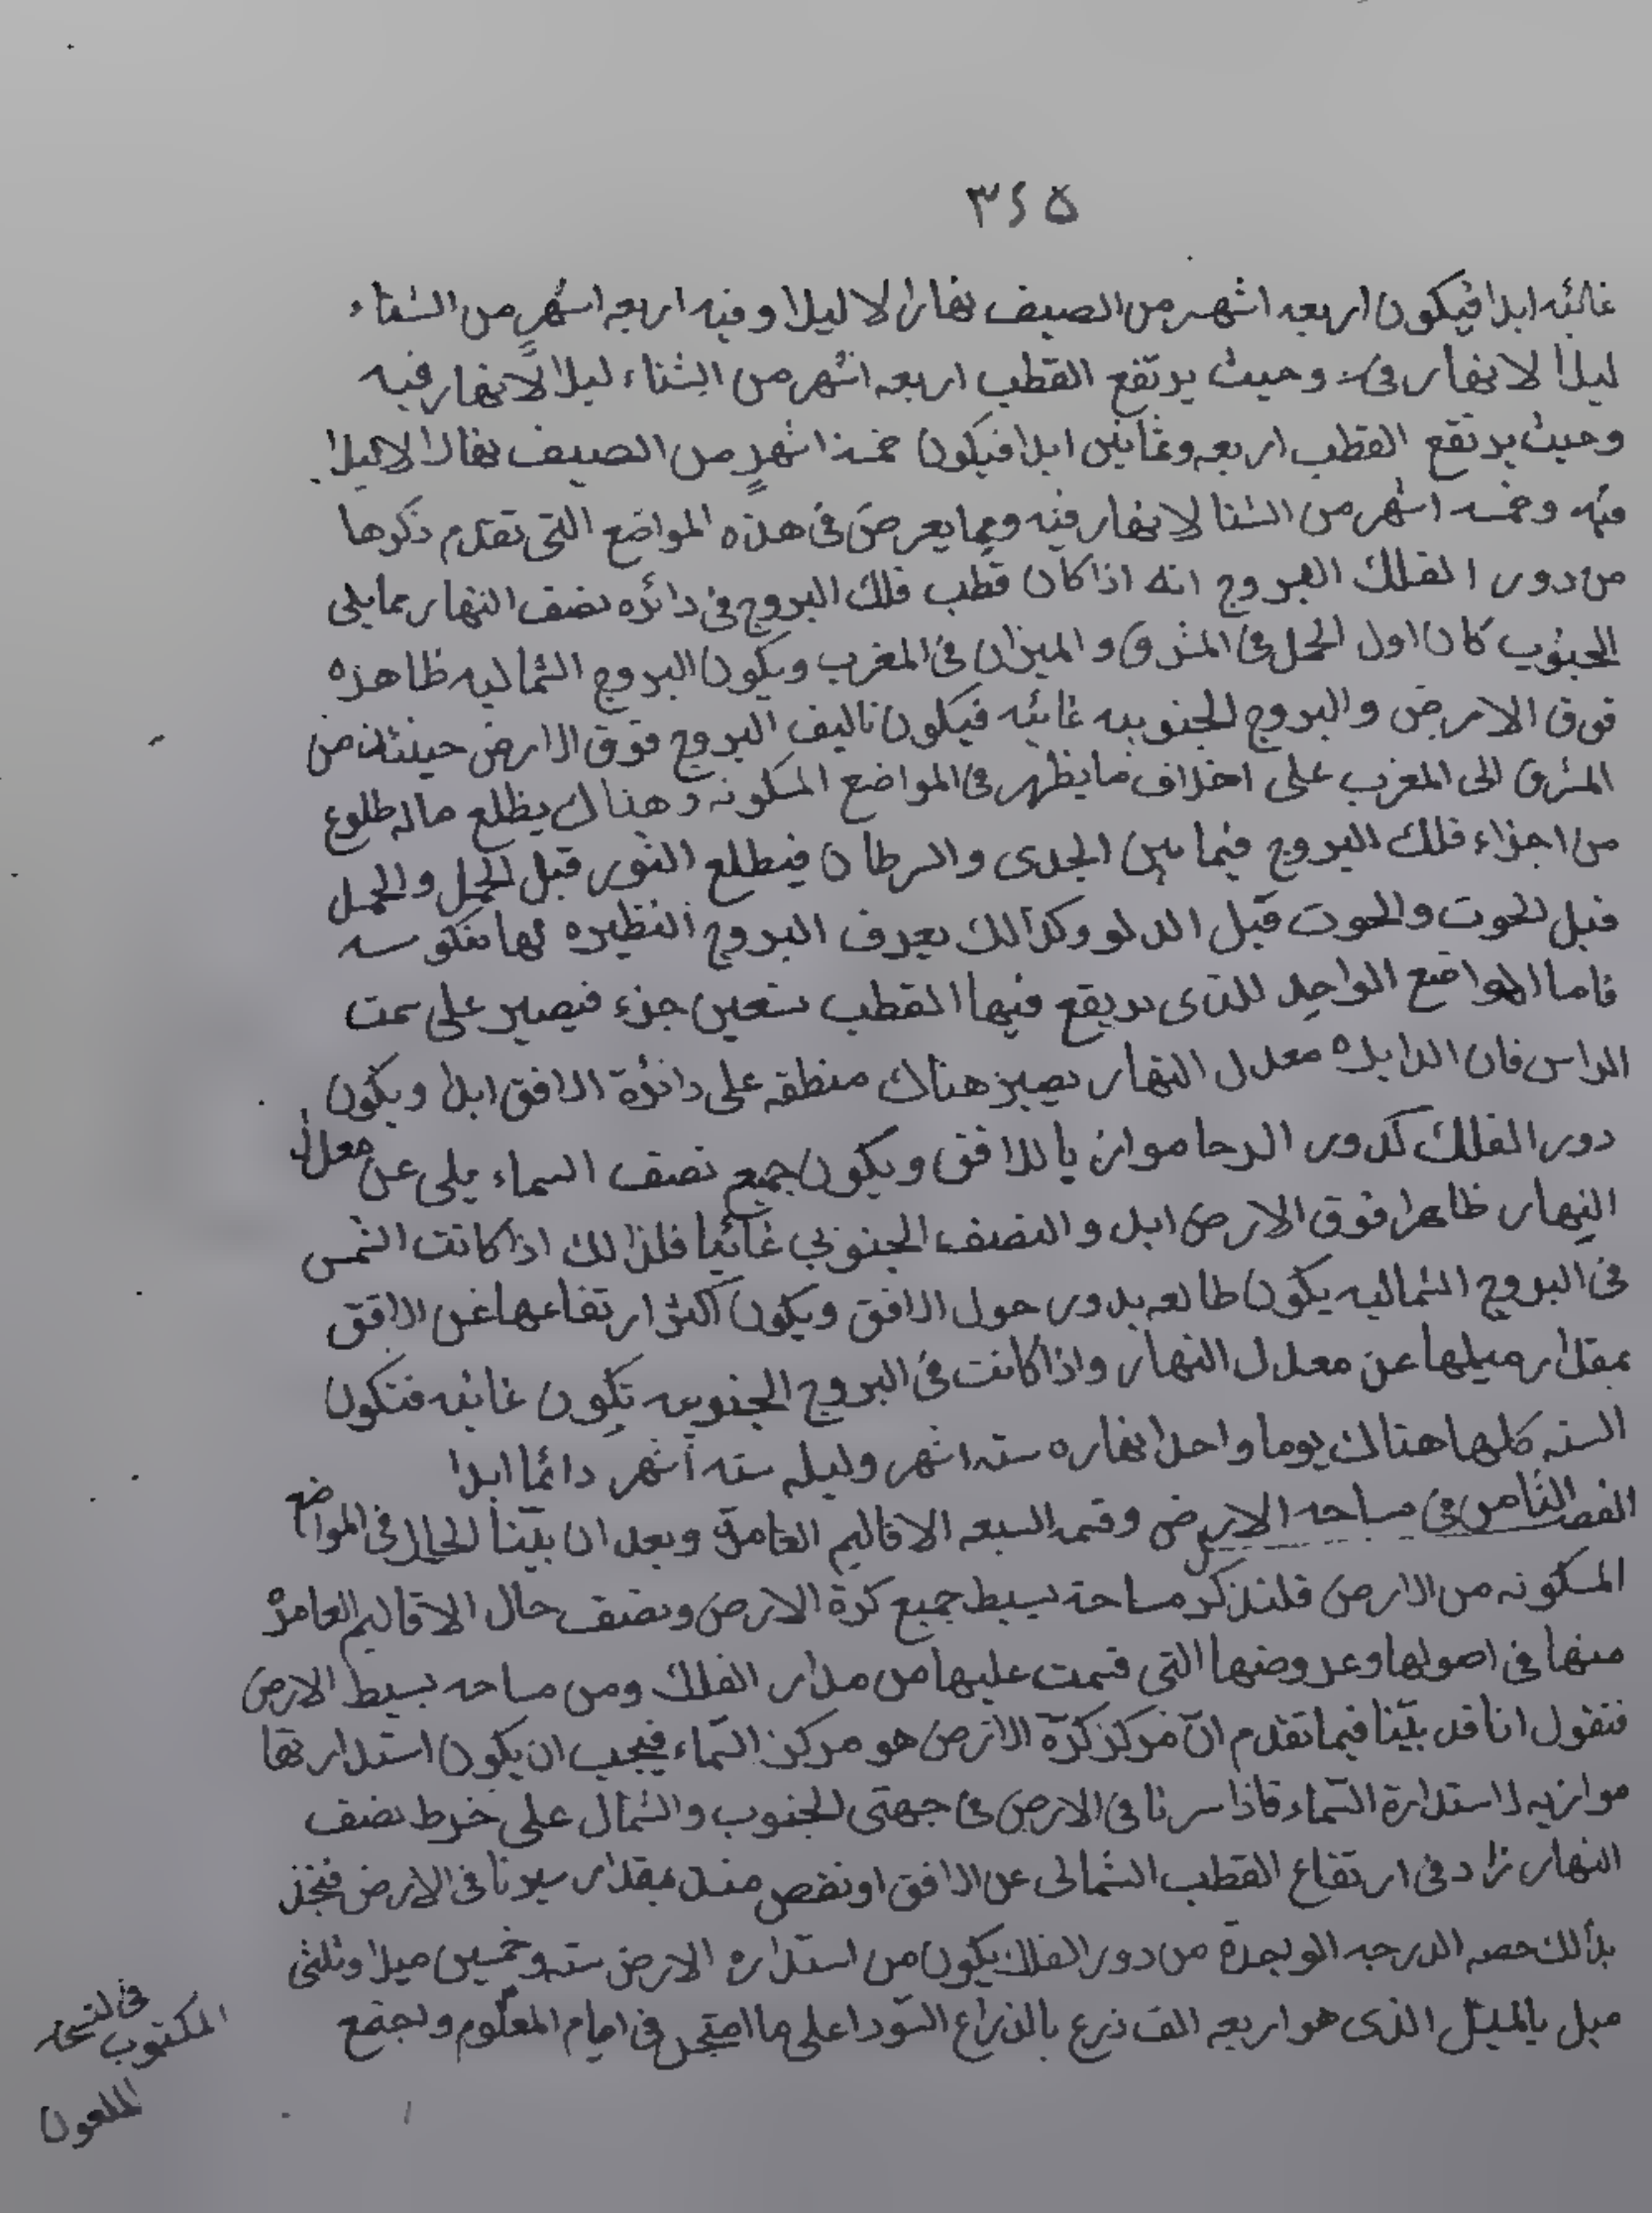 ٣٤٥
غائبه ابدا فيكون اربعه اشهر من الصيف نهارا لا ليلا وفيه اربعه اشهرٍ من الشتاء
ليلاً لا نهار فى وحيث يرتفع القطب اربعه اشهر من الشتاء ليلا لا نهار فيه
وحيث يرتفع القطب اربعه وثمانين ابدا فيكون خمسة اشهرٍ من الصيف نهارا لا ليلا
فيه وخمسه اشهر من الشتا لا نهار فيه ومما يعرض فى هذه المواضع التى تقدم ذكرها
من دور الفلك البروج انه اذا كان قطب فلك البروج فى دائره نصف النهار مما يلى
الجنوب كان اول الحمل فى المشرق و الميزان فى المغرب ويكون البروج الشماليه ظاهره
فوق الارض والبروج الجنوبيه غائبه فيكون تاليف البروج فوق الارض حينئذ من
المشرق الى المغرب على اخلاف ما يظهر فى المواضع المسكونه وهناك يطلع ماله طلوع
من اجزاء فلك البروج فيما بين الجدى والسرطان فيطلع الثور قبل الحمل والحمل
قبل الحوت والحوت قبل الدلو وكذالك يعرف البروج النظيره لها منكوسه
فاما المواضع الواحد للذى يريقع فيها القطب تسعين جزء فيصير على سمت
الراس فان الدايره معدل النهار يصير هناك منطقه على دائرة الافق ابدا ويكون
دور الفلك كدور الرحا موازيا للافق ويكون جميع نصف السماء يلى عن معدل
النهار ظاهرا فوق الارض ابد والنصف الجنوبي غائبا فلذالك اذا كانت الشمس
فى البروج الشماليه يكون طالعه بدور حول الافق ويكون اكثر ارتفاعها عن الافق
بمقدار ميلها عن معدل النهار واذا كانت فى البروج الجنوبيه تكون غائبه فتكون
السنه كلها هناك يوما واحدا نهاره سته اشهر وليله سته اشهر دائما ابدا
الفصل الثامن فى مساحه الارض وقسمه السبعه الاقاليم العامرة وبعد ان بيّنا الحال فى المواضع
المسكونه من الارض فلنذكر مساحة بسيط جميع كرة الارض ونصف حال الاقاليم العامرة
منها فى اصولها وعروضها التى قسمت عليها من مدار الفلك ومن مساحه بسيط الارض
فنقول انا قد بيّنا فيما تقدم انّ مركز كرّة الارض هو مركز السّماء فيجب ان يكون استدارتها
موازيه لاستدارة السّماء فاذا سرنا فى الارض فى جهتى الجنوب والشمال على خرط نصف
النهار زاد فى ارتفاع القطب الشمالى عن الافق او نقص منه بمقدار سيرنا فى الارض فنجد
بذالك حصه الدرجه الوجدة من دور الفلك يكون من استداره الارض سته وخمسين ميلا وثلثى
ميل بالميل الذى هو اربعه الف ذرع بالذراع السّودا على ما امتحن فى ايام المعلوم ولجتمع
المكتوب فى النسخه
الملعون